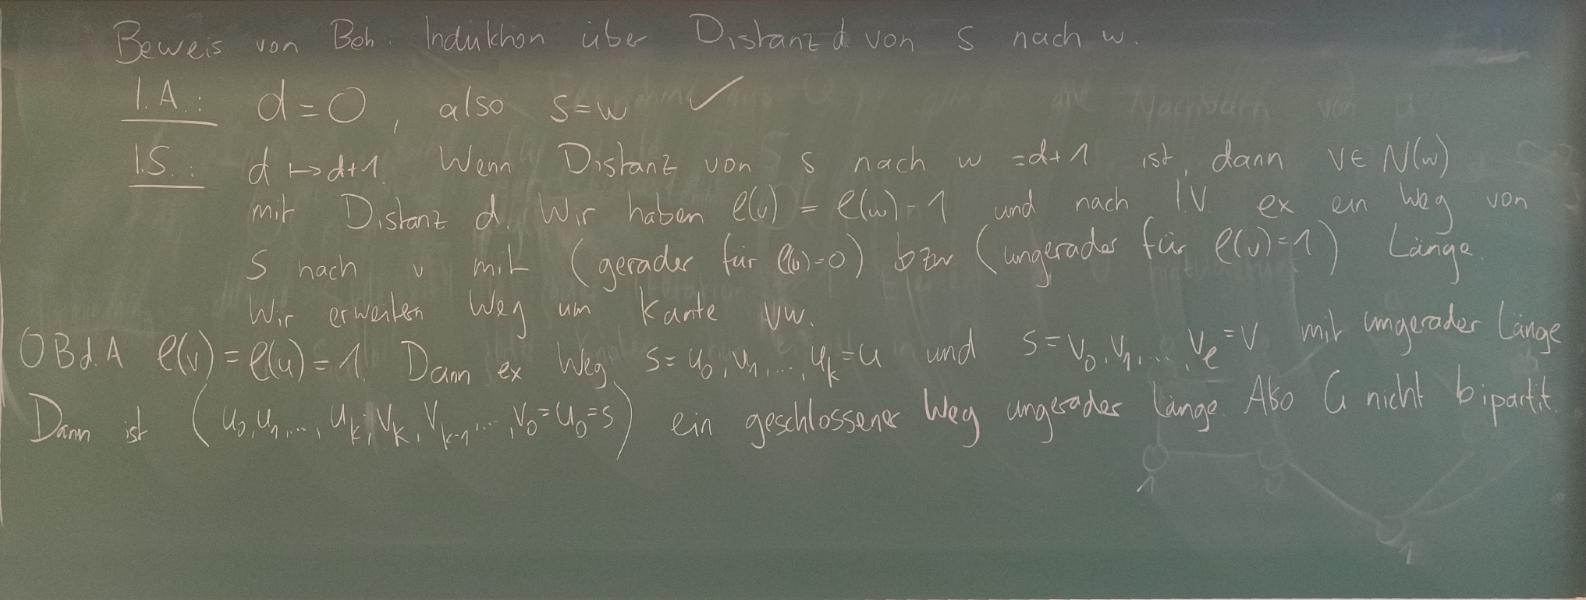 Beweis von Beh: Induktion über Distanz d von s nach w.
I.A.: d=0, also s=w ✓
I.S.: d ↦ d+1. Wenn Distanz von s nach w =d+1 ist, dann v∈N(w)
mit Distanz d. Wir haben ℓ(v) = ℓ(w)-1 und nach I.V. ex ein Weg von
s nach v mit (gerader für ℓ(v)=0) bzw (ungerader für ℓ(v)=1) Länge.
Wir erweitern Weg um Kante vw.
OBdA ℓ(v)=ℓ(u)=1. Dann ex Weg s=u₀,u₁,...,uₖ=u und s=v₀,v₁,...,vₑ=v mit ungerader Länge
Dann ist (u₀,u₁,...,uₖ,vₖ,vₖ₋₁,...,v₀=u₀=s) ein geschlossener Weg ungerader Länge. Also G nicht bipartit.